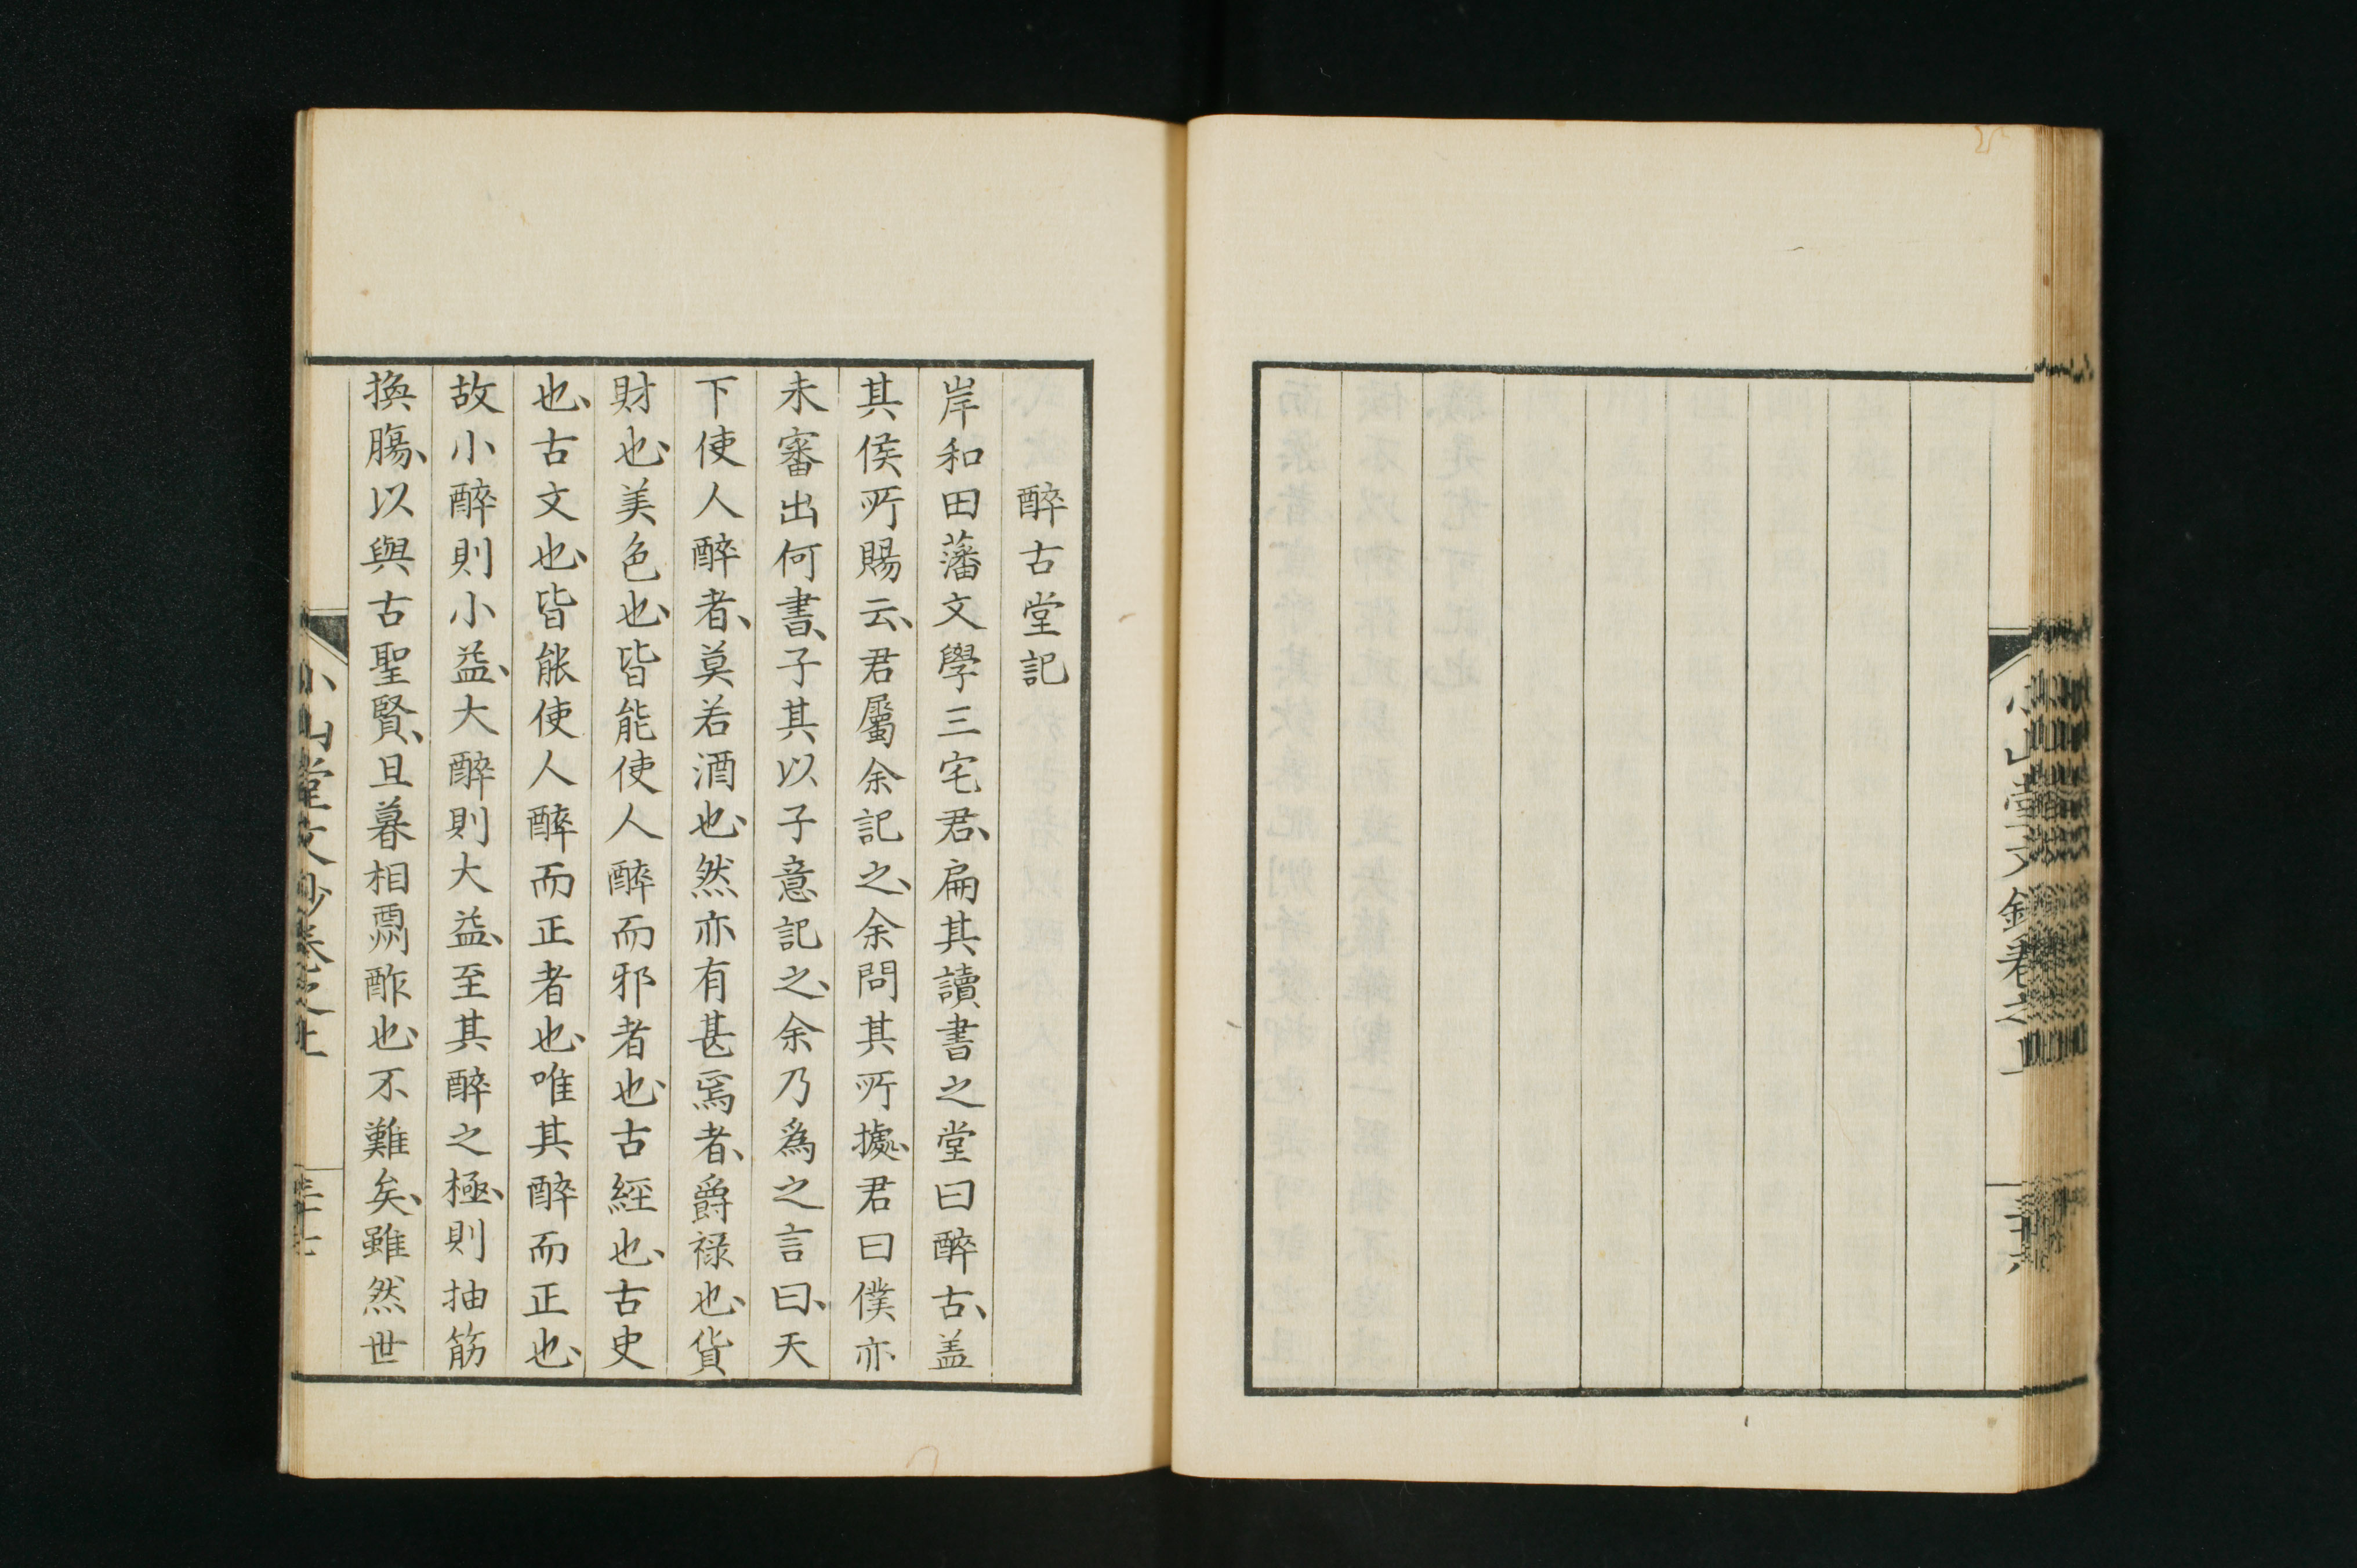 小山堂文鈔卷之上
三十六
醉古堂記
岸和田藩文學三宅君、扁其讀書之堂曰醉古、盖
其侯所賜云、君屬余記之、余問其所據、君曰僕亦
未審出何書、子其以子意記之、余乃爲之言曰、天
下使人醉者、莫若酒也、然亦有甚焉者、爵祿也、貨
財也、美色也、皆能使人醉而邪者也、古經也、古史
也、古文也、皆能使人醉而正者也、唯其醉而正也、
故小醉則小益、大醉則大益、至其醉之極、則抽筋
換膓、以與古聖賢、旦暮相酹酢也、不難矣、雖然世
小山堂文鈔卷之上
三十七